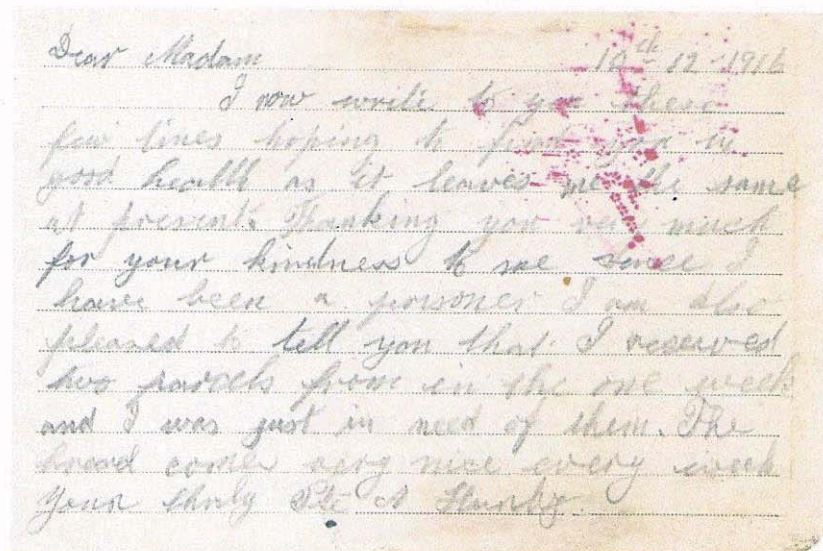 Dear Madam 10th-12-1916
I now write to you these
few lines hoping to find you in
good health as it leaves me the same
at present. Thanking you very much
for your kindness to me since I
have been a prisoner I am also
pleased to tell you that I received
two parcels from in the one week
and I was just in need of them. The
bread comes very nice every week
Your truly Pte A